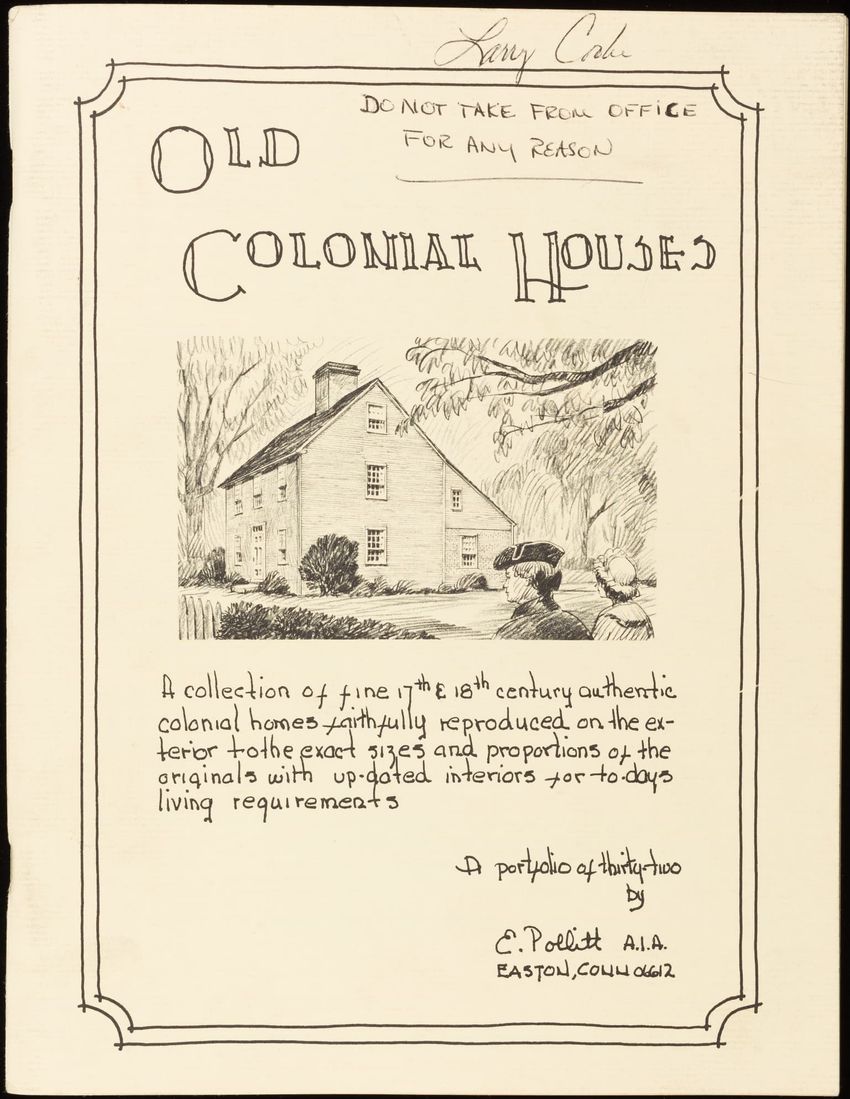 Larry
DO NOT TAKE FROM OFFICE
FOR ANY REASON
OLD
COLONIAL HOUSES
A collection of fine 17th & 18th century authentic
colonial homes faithfully reproduced on the ex-
terior to the exact sizes and proportions of the
originals with up-dated interiors for to-days
living requirements
A portfolio of thirty-two
by
E. Pollitt A.I.A.
EASTON, CONN 06612